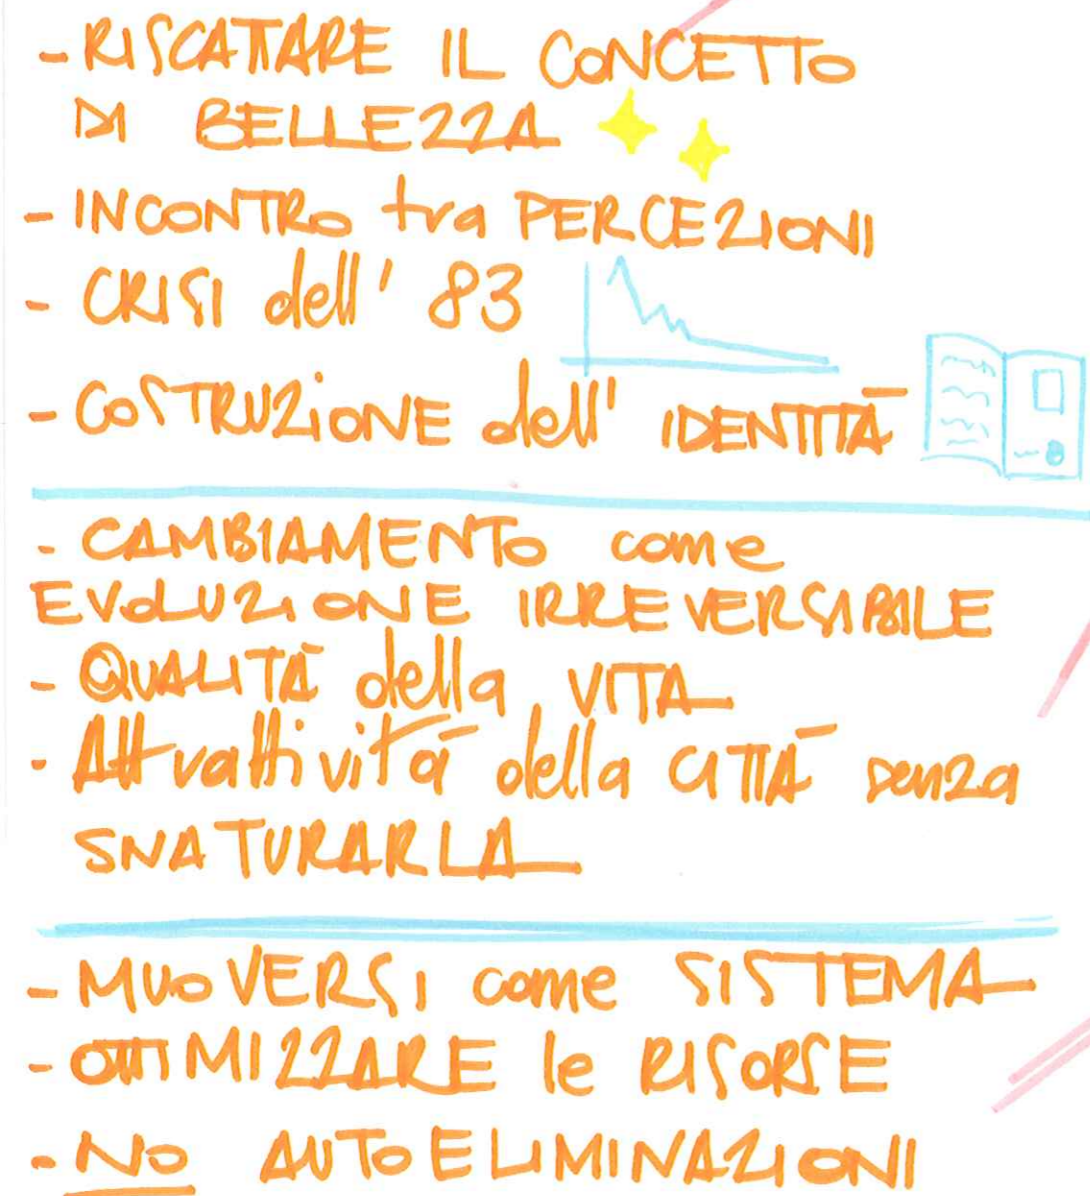 - RISCATTARE IL CONCETTO
DI BELLEZZA
- INCONTRO tra PERCEZIONI
- CRISI dell' 83
- COSTRUZIONE dell' IDENTITÀ
- CAMBIAMENTO come
EVOLUZIONE IRREVERSIBILE
- QUALITÀ della VITA
- Attrattività della CITTÀ senza
SNATURARLA
- MUOVERSI come SISTEMA
- OTTIMIZZARE le RISORSE
- NO AUTOELIMINAZIONI